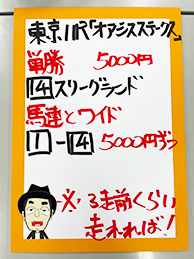 東京11R「オアシスステークス」
単勝 5000円
14スリーグランド
馬連とワイド
1-14 5000円ずつ
※3走前くらい
走れれば!